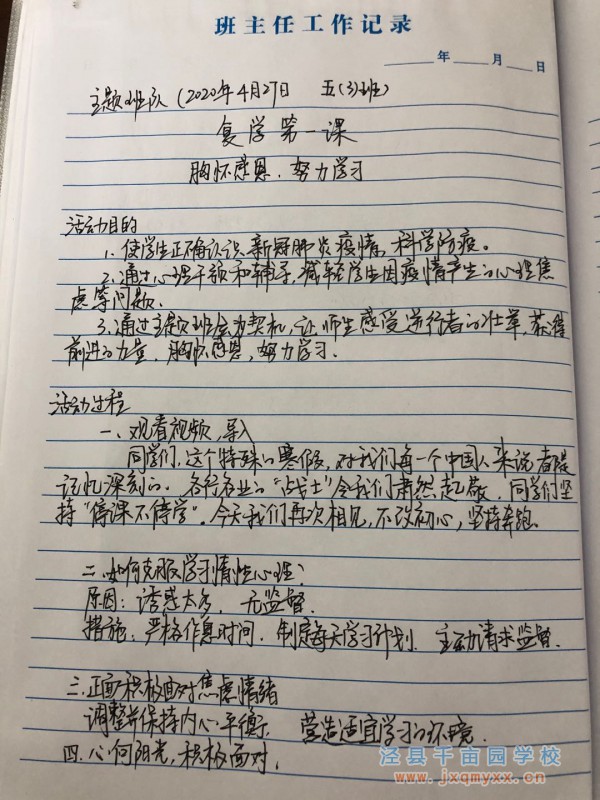 班主任工作记录
年 月 日
主题班队(2020年4月27日 五(3)班)
复学第一课
胸怀感恩、努力学习
活动目的
1、使学生正确认识新冠肺炎疫情,科学防疫。
2、通过心理干预和辅导,减轻学生因疫情产生的心理焦
虑等问题.
3、通过主题班会为契机,让师生感受逆行者的壮举,获得
前进的力量,胸怀感恩,努力学习.
活动过程
一、观看视频,导入
同学们,这个特殊的寒假,对我们每一个中国人来说都是
记忆深刻的。各行各业的"战士"令我们肃然起敬,同学们坚
持"停课不停学"。今天我们再次相见,不改初心,坚持奔跑。
二、如何克服学习惰性心理?
原因:诱惑太多,无监督.
措施:严格作息时间.制定每天学习计划.主动请求监督.
三、正面积极面对焦虑情绪
调整并保持内心平衡.营造适宜学习的环境.
四、心向阳光,积极面对.
泾县千亩园学校
www.jxqmyxx.cn